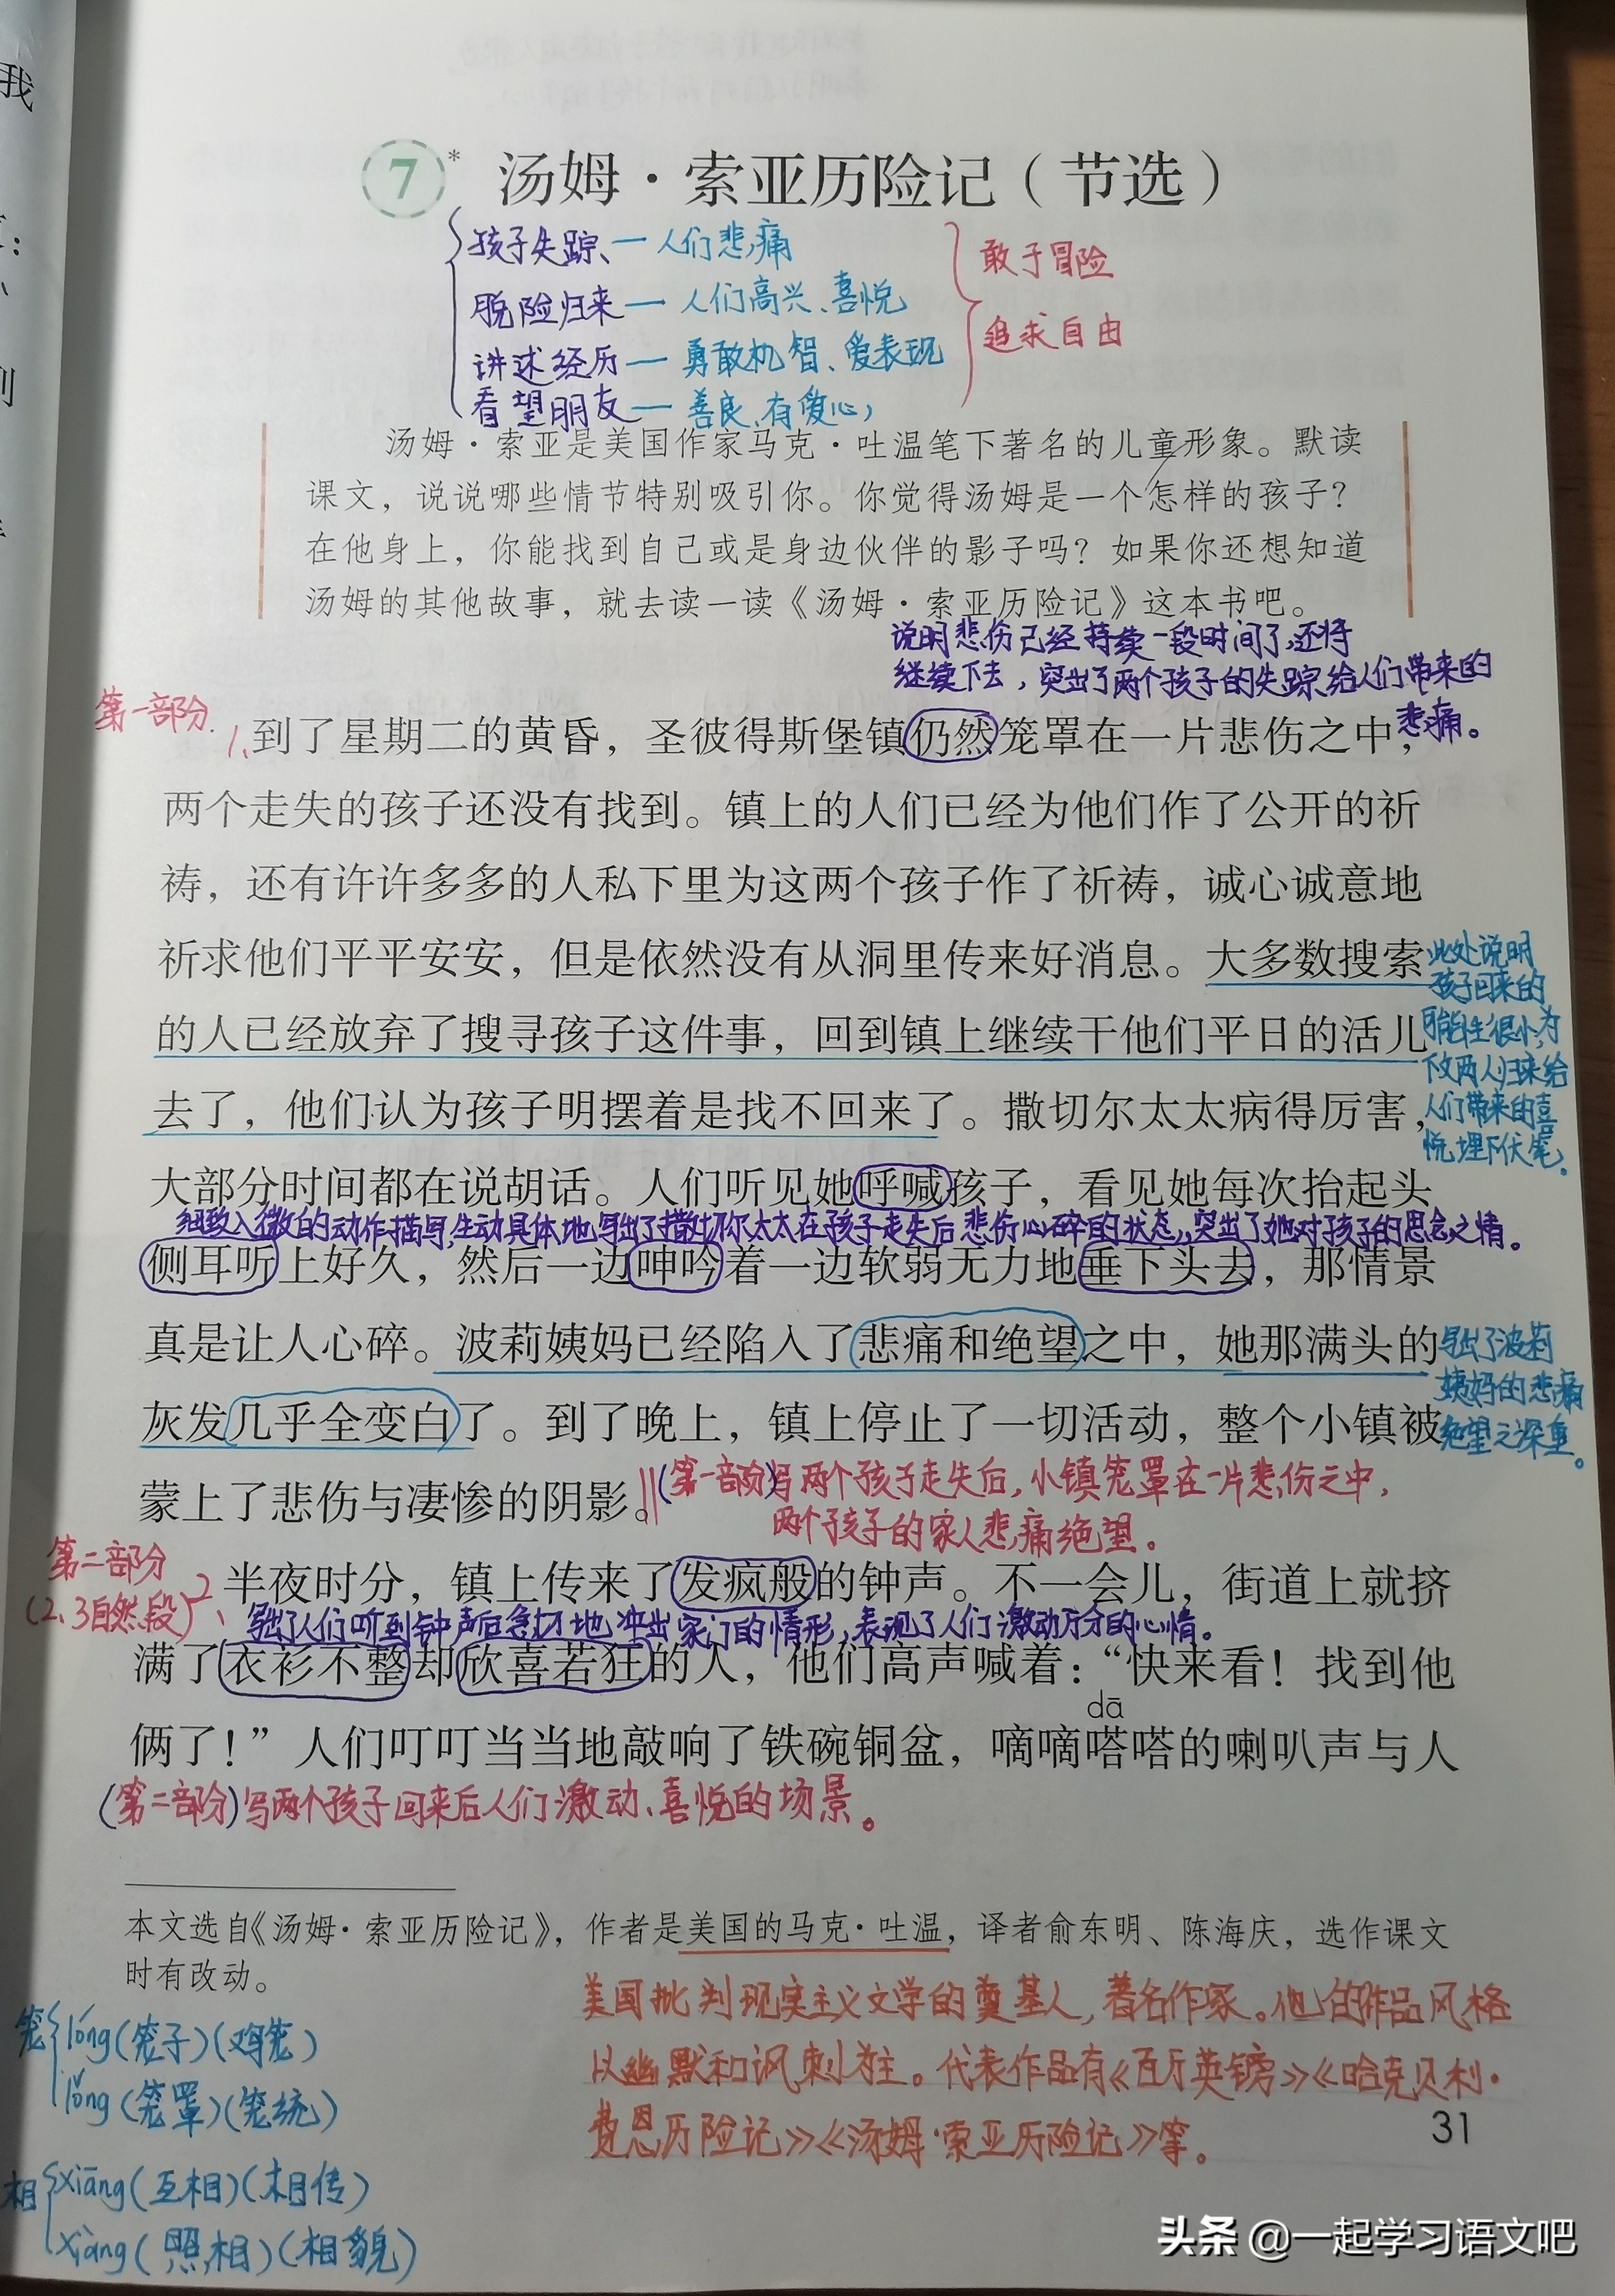 我
:
刂
7* 汤姆·索亚历险记（节选）
孩子失踪 — 人们悲痛
脱险归来 — 人们高兴、喜悦
讲述经历 — 勇敢机智、爱表现
看望朋友 — 善良、有爱心
敢于冒险
追求自由
汤姆·索亚是美国作家马克·吐温笔下著名的儿童形象。默读
课文，说说哪些情节特别吸引你。你觉得汤姆是一个怎样的孩子？
在他身上，你能找到自己或是身边伙伴的影子吗？如果你还想知道
汤姆的其他故事，就去读一读《汤姆·索亚历险记》这本书吧。
说明悲伤已经持续一段时间了，还将
继续下去，突出了两个孩子的失踪给人们带来的
悲痛。
第一部分.
1、到了星期二的黄昏，圣彼得斯堡镇仍然笼罩在一片悲伤之中，
两个走失的孩子还没有找到。镇上的人们已经为他们作了公开的祈
祷，还有许许多多的人私下里为这两个孩子作了祈祷，诚心诚意地
祈求他们平平安安，但是依然没有从洞里传来好消息。大多数搜索
的人已经放弃了搜寻孩子这件事，回到镇上继续干他们平日的活儿
去了，他们认为孩子明摆着是找不回来了。撒切尔太太病得厉害，
此处说明
孩子回来的
可能性很小，为
下文两人归来给
人们带来的喜
悦埋下伏笔。
大部分时间都在说胡话。人们听见她呼喊孩子，看见她每次抬起头
细致入微的动作描写，生动具体地写出了撒切尔太太在孩子走失后悲伤心碎的状态，突出了她对孩子的思念之情。
侧耳听上好久，然后一边呻吟着一边软弱无力地垂下头去，那情景
真是让人心碎。波莉姨妈已经陷入了悲痛和绝望之中，她那满头的
灰发几乎全变白了。到了晚上，镇上停止了一切活动，整个小镇被
写出了波莉
姨妈的悲痛
绝望之深重。
蒙上了悲伤与凄惨的阴影。
(第一部分)写两个孩子走失后，小镇笼罩在一片悲伤之中，
两个孩子的家人悲痛绝望。
第二部分
(2、3自然段)
2、半夜时分，镇上传来了发疯般的钟声。不一会儿，街道上就挤
写出了人们听到钟声后急切地冲出家门的情形，表现了人们激动万分的心情。
满了衣衫不整却欣喜若狂的人，他们高声喊着：“快来看！找到他
dā
俩了！”人们叮叮当当地敲响了铁碗铜盆，嘀嘀嗒嗒的喇叭声与人
(第二部分)写两个孩子回来后人们激动、喜悦的场景。
本文选自《汤姆·索亚历险记》，作者是美国的马克·吐温，译者俞东明、陈海庆，选作课文
时有改动。
美国批判现实主义文学的奠基人，著名作家。他的作品风格
以幽默和讽刺为主。代表作品有《百万英镑》《哈克贝利·
费恩历险记》《汤姆·索亚历险记》等。
笼
lóng(笼子)(鸡笼)
lǒng(笼罩)(笼统)
相
xiāng(互相)(相传)
xiàng(照相)(相貌)
31
头条 @一起学习语文吧